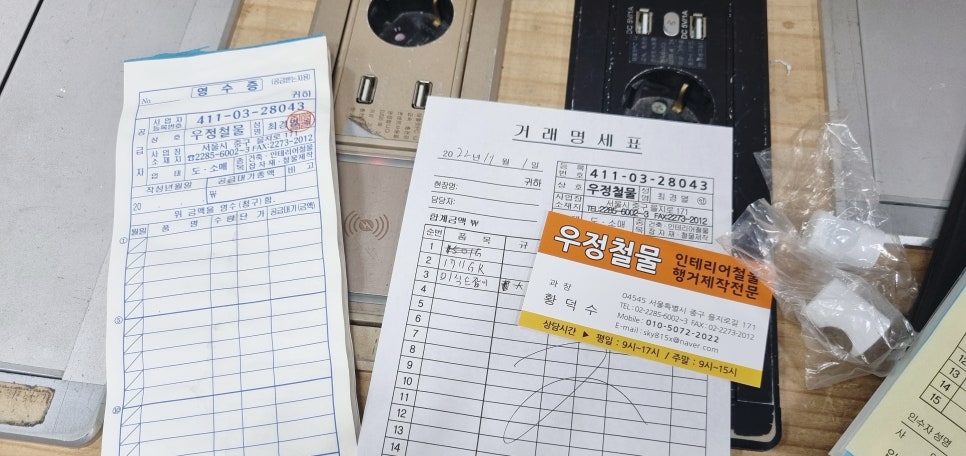 영 수 증 (공급받는자용)
No. 귀하
사업자
등록번호 411-03-28043
상호 우정철물 성명 최경열
사업장
소재지 서울시 중구 을지로 171
☎2285-6002~3 FAX:2273-2012
업태 도·소매 종목 건축·인테리어철물
잡자재·철물제작
작성년월일 공급대가총액 비고
20 ₩
위 금액을 영수(청구)함.
월일 품명 수량 단가 공급대가(금액)
①
⑤
⑩
DC 5V1A
DC 5V1A
거 래 명 세 표
20 22년 11월 1일
귀하
현장명:
담당자:
합계금액 ₩
등록 411-03-28043
상호 우정철물 성명 최경열 ㊞
사업장
소재지 서울시 중구 을지로 171
TEL:2285-6002~3 FAX:2273-2012
도·소매 종목 건축·인테리어철물
잡자재·철물제작
순번 품 목 규
1
2 1711GR
3
4
5
6
7
8
9
10
11
12
13
14
우정철물 인테리어철물
행거제작전문
과 장
황 덕 수
04545 서울특별시 중구 을지로길 171
TEL : 02-2285-6002~3 FAX : 02-2273-2012
Mobile : 010-5072-2022
E-mail : sky815x@naver.com
상담시간 ▶ 평일 : 9시~17시 / 주말 : 9시~15시
12
13
14
15
인수자성명
사